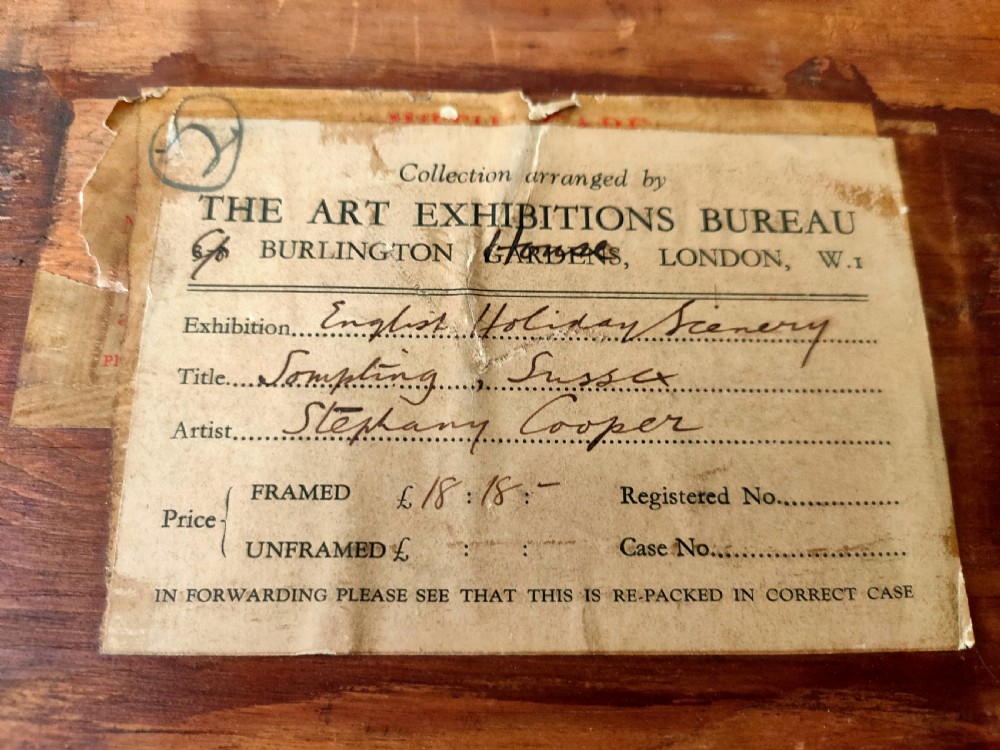 Collection arranged by
THE ART EXHIBITIONS BUREAU
BURLINGTON House, LONDON, W.1
Exhibition....English Holiday Scenery
Title....Sompting, Sussex
Artist....Stephany Cooper
Price
FRAMED £18:18:-
UNFRAMED £ : :
Registered No.
Case No.
IN FORWARDING PLEASE SEE THAT THIS IS RE-PACKED IN CORRECT CASE